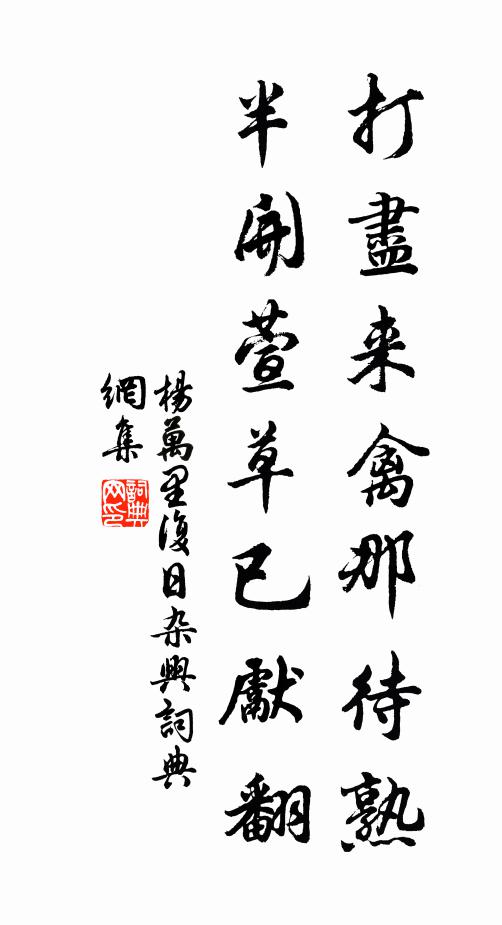 打盡来禽那待熟
半開萱草已獻翻
楊萬里復日杂興詞典
網集
詞典網印